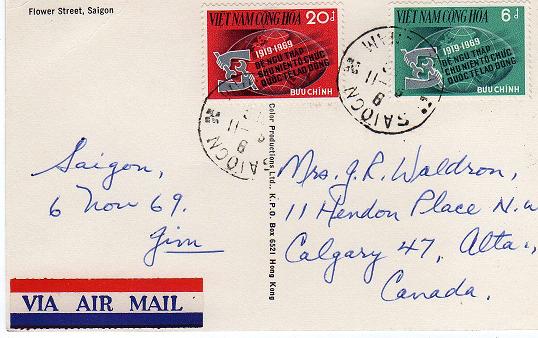 Flower Street, Saigon
VIỆT NAM CỘNG HÒA
20đ
1919-1969
ĐỆ NGŨ THẬP
CHU NIÊN TỔ CHỨC
QUỐC TẾ LAO ĐỘNG
BƯU CHÍNH
VIỆT NAM CỘNG HÒA
6đ
1919-1969
ĐỆ NGŨ THẬP
CHU NIÊN TỔ CHỨC
QUỐC TẾ LAO ĐỘNG
BƯU CHÍNH
SAIGON
SAIGON
Saigon,
6 Nov 69.
Jim
VIA AIR MAIL
Color Productions Ltd., K.P.O. Box 6521 Hong Kong
Mrs. J. R. Waldron,
11 Hendon Place N.W
Calgary 47, Alta.,
Canada.